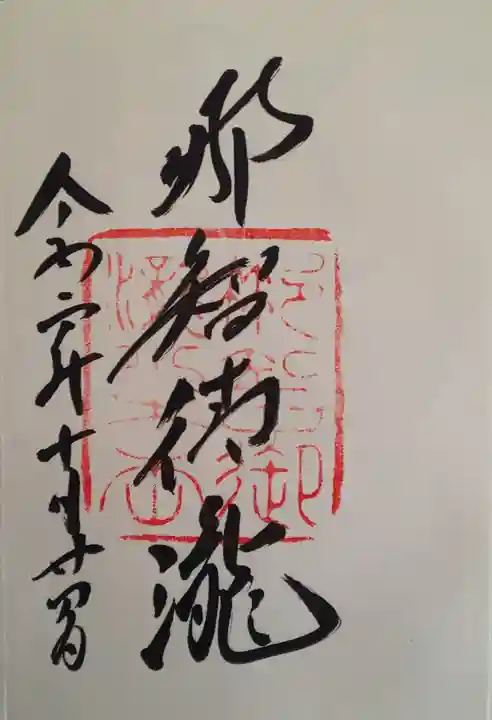 那智御瀧
令和二年十月廿四日